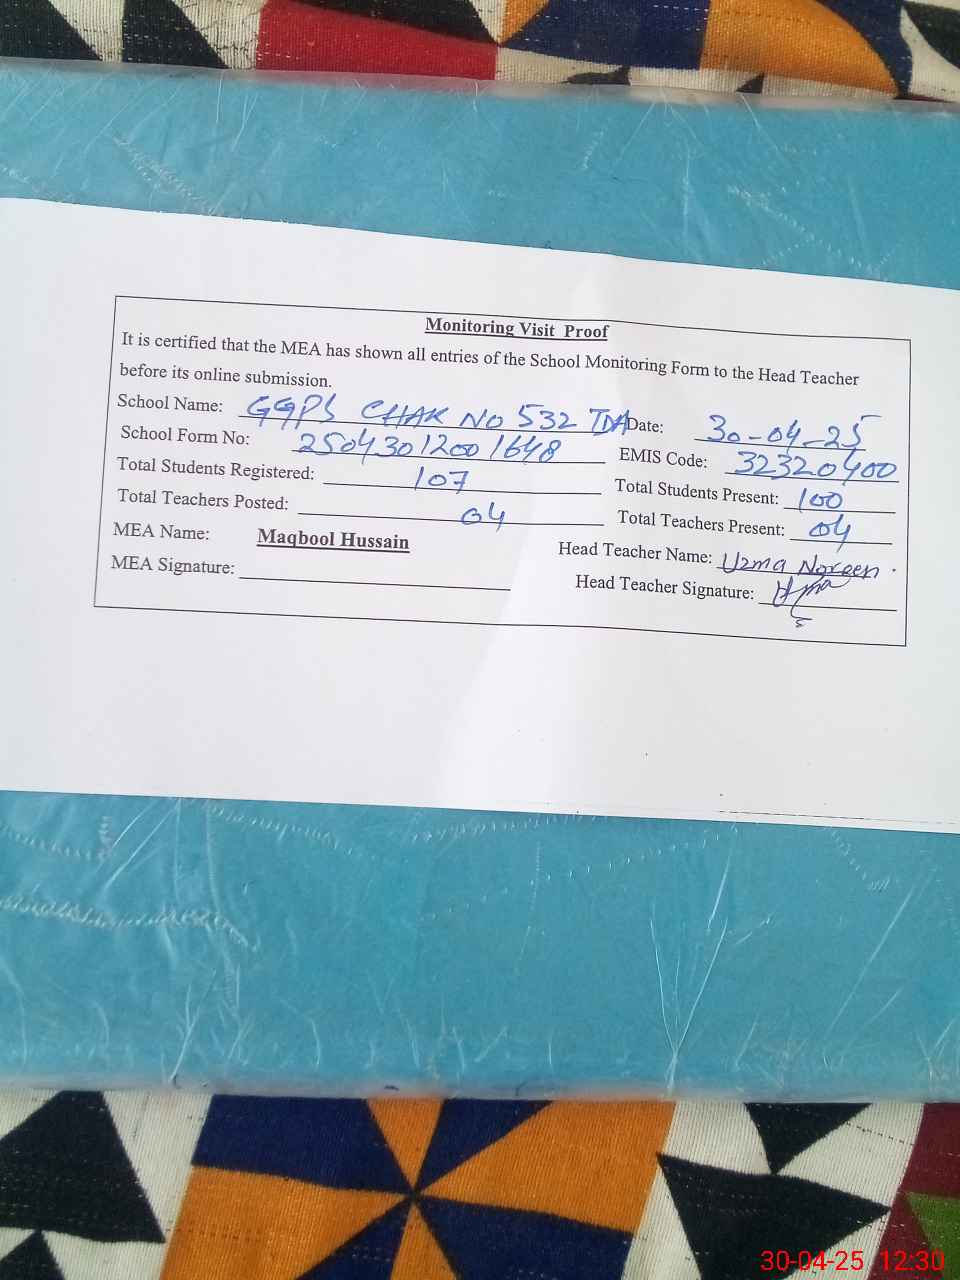 Monitoring Visit Proof
It is certified that the MEA has shown all entries of the School Monitoring Form to the Head Teacher
before its online submission.
School Name: GGPS CHAK NO 532 TDA Date: 30-04-25
School Form No: 25043012001648 EMIS Code: 32320400
Total Students Registered: 107 Total Students Present: 100
Total Teachers Posted: 04 Total Teachers Present: 04
MEA Name: Maqbool Hussain Head Teacher Name: Uzma Noreen.
MEA Signature: Head Teacher Signature:
30-04-25 12:30